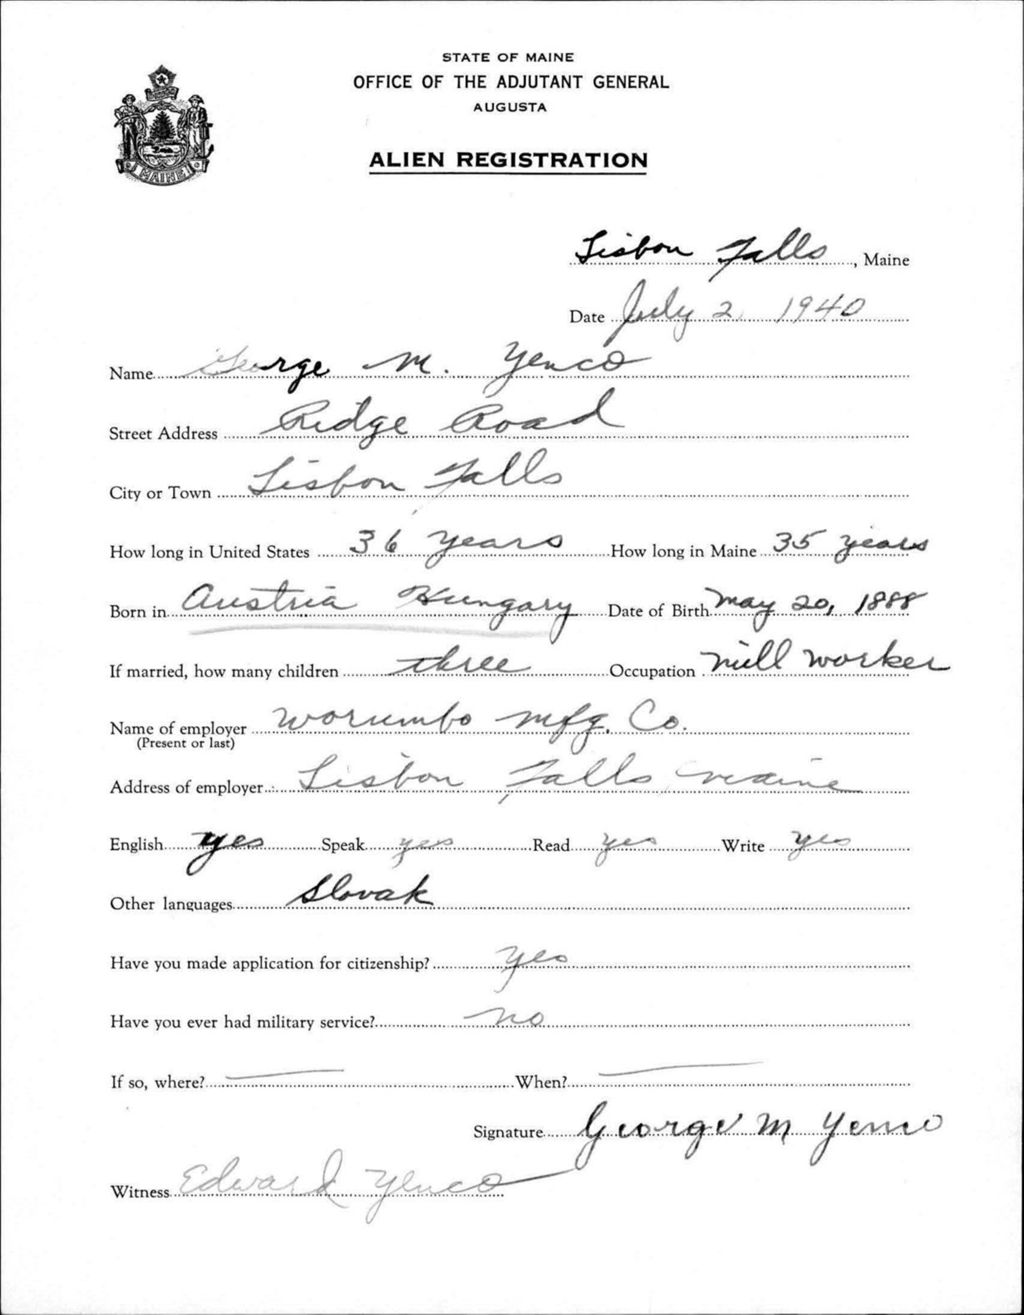 STATE OF MAINE
OFFICE OF THE ADJUTANT GENERAL
AUGUSTA
ALIEN REGISTRATION
MAINE
Lisbon Falls, Maine
Date July 2, 1940
Name George M. Yenco
Street Address Ridge Road
City or Town Lisbon Falls
How long in United States 36 years How long in Maine 35 years
Born in Austria Hungary Date of Birth May 20, 1888
If married, how many children three Occupation mill worker
Name of employer Worumbo Mfg. Co.
(Present or last)
Address of employer Lisbon Falls Maine
English yes Speak yes Read yes Write yes
Other languages Slovak
Have you made application for citizenship? yes
Have you ever had military service? no
If so, where? — When? —
Signature George M Yenco
Witness Edward Yenco